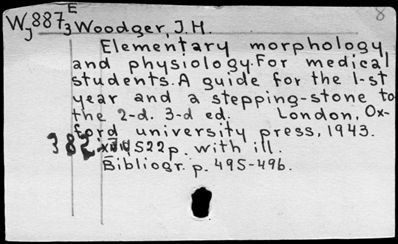 E 8
W 887 Woodger, J.H.
J 3
Elementary morphology
and physiology. For medical
students. A guide for the 1-st
year and a stepping-stone to
the 2-d. 3-d ed. London, Ox-
ford university press, 1943.
382 522 p. with ill.
Bibliogr. p. 495-496.